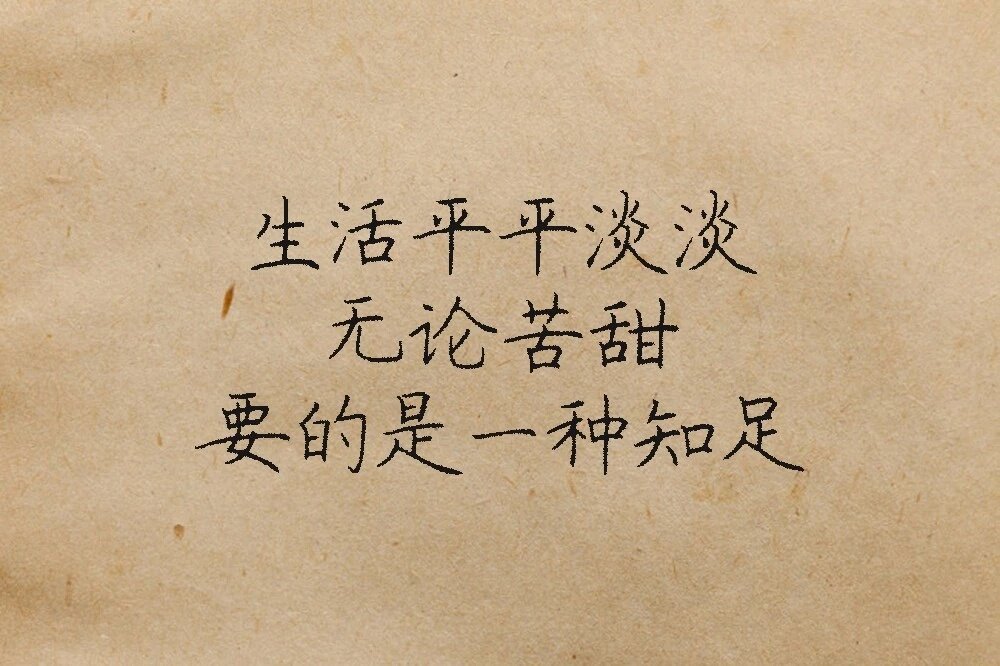 生活平平淡淡
无论苦甜
要的是一种知足